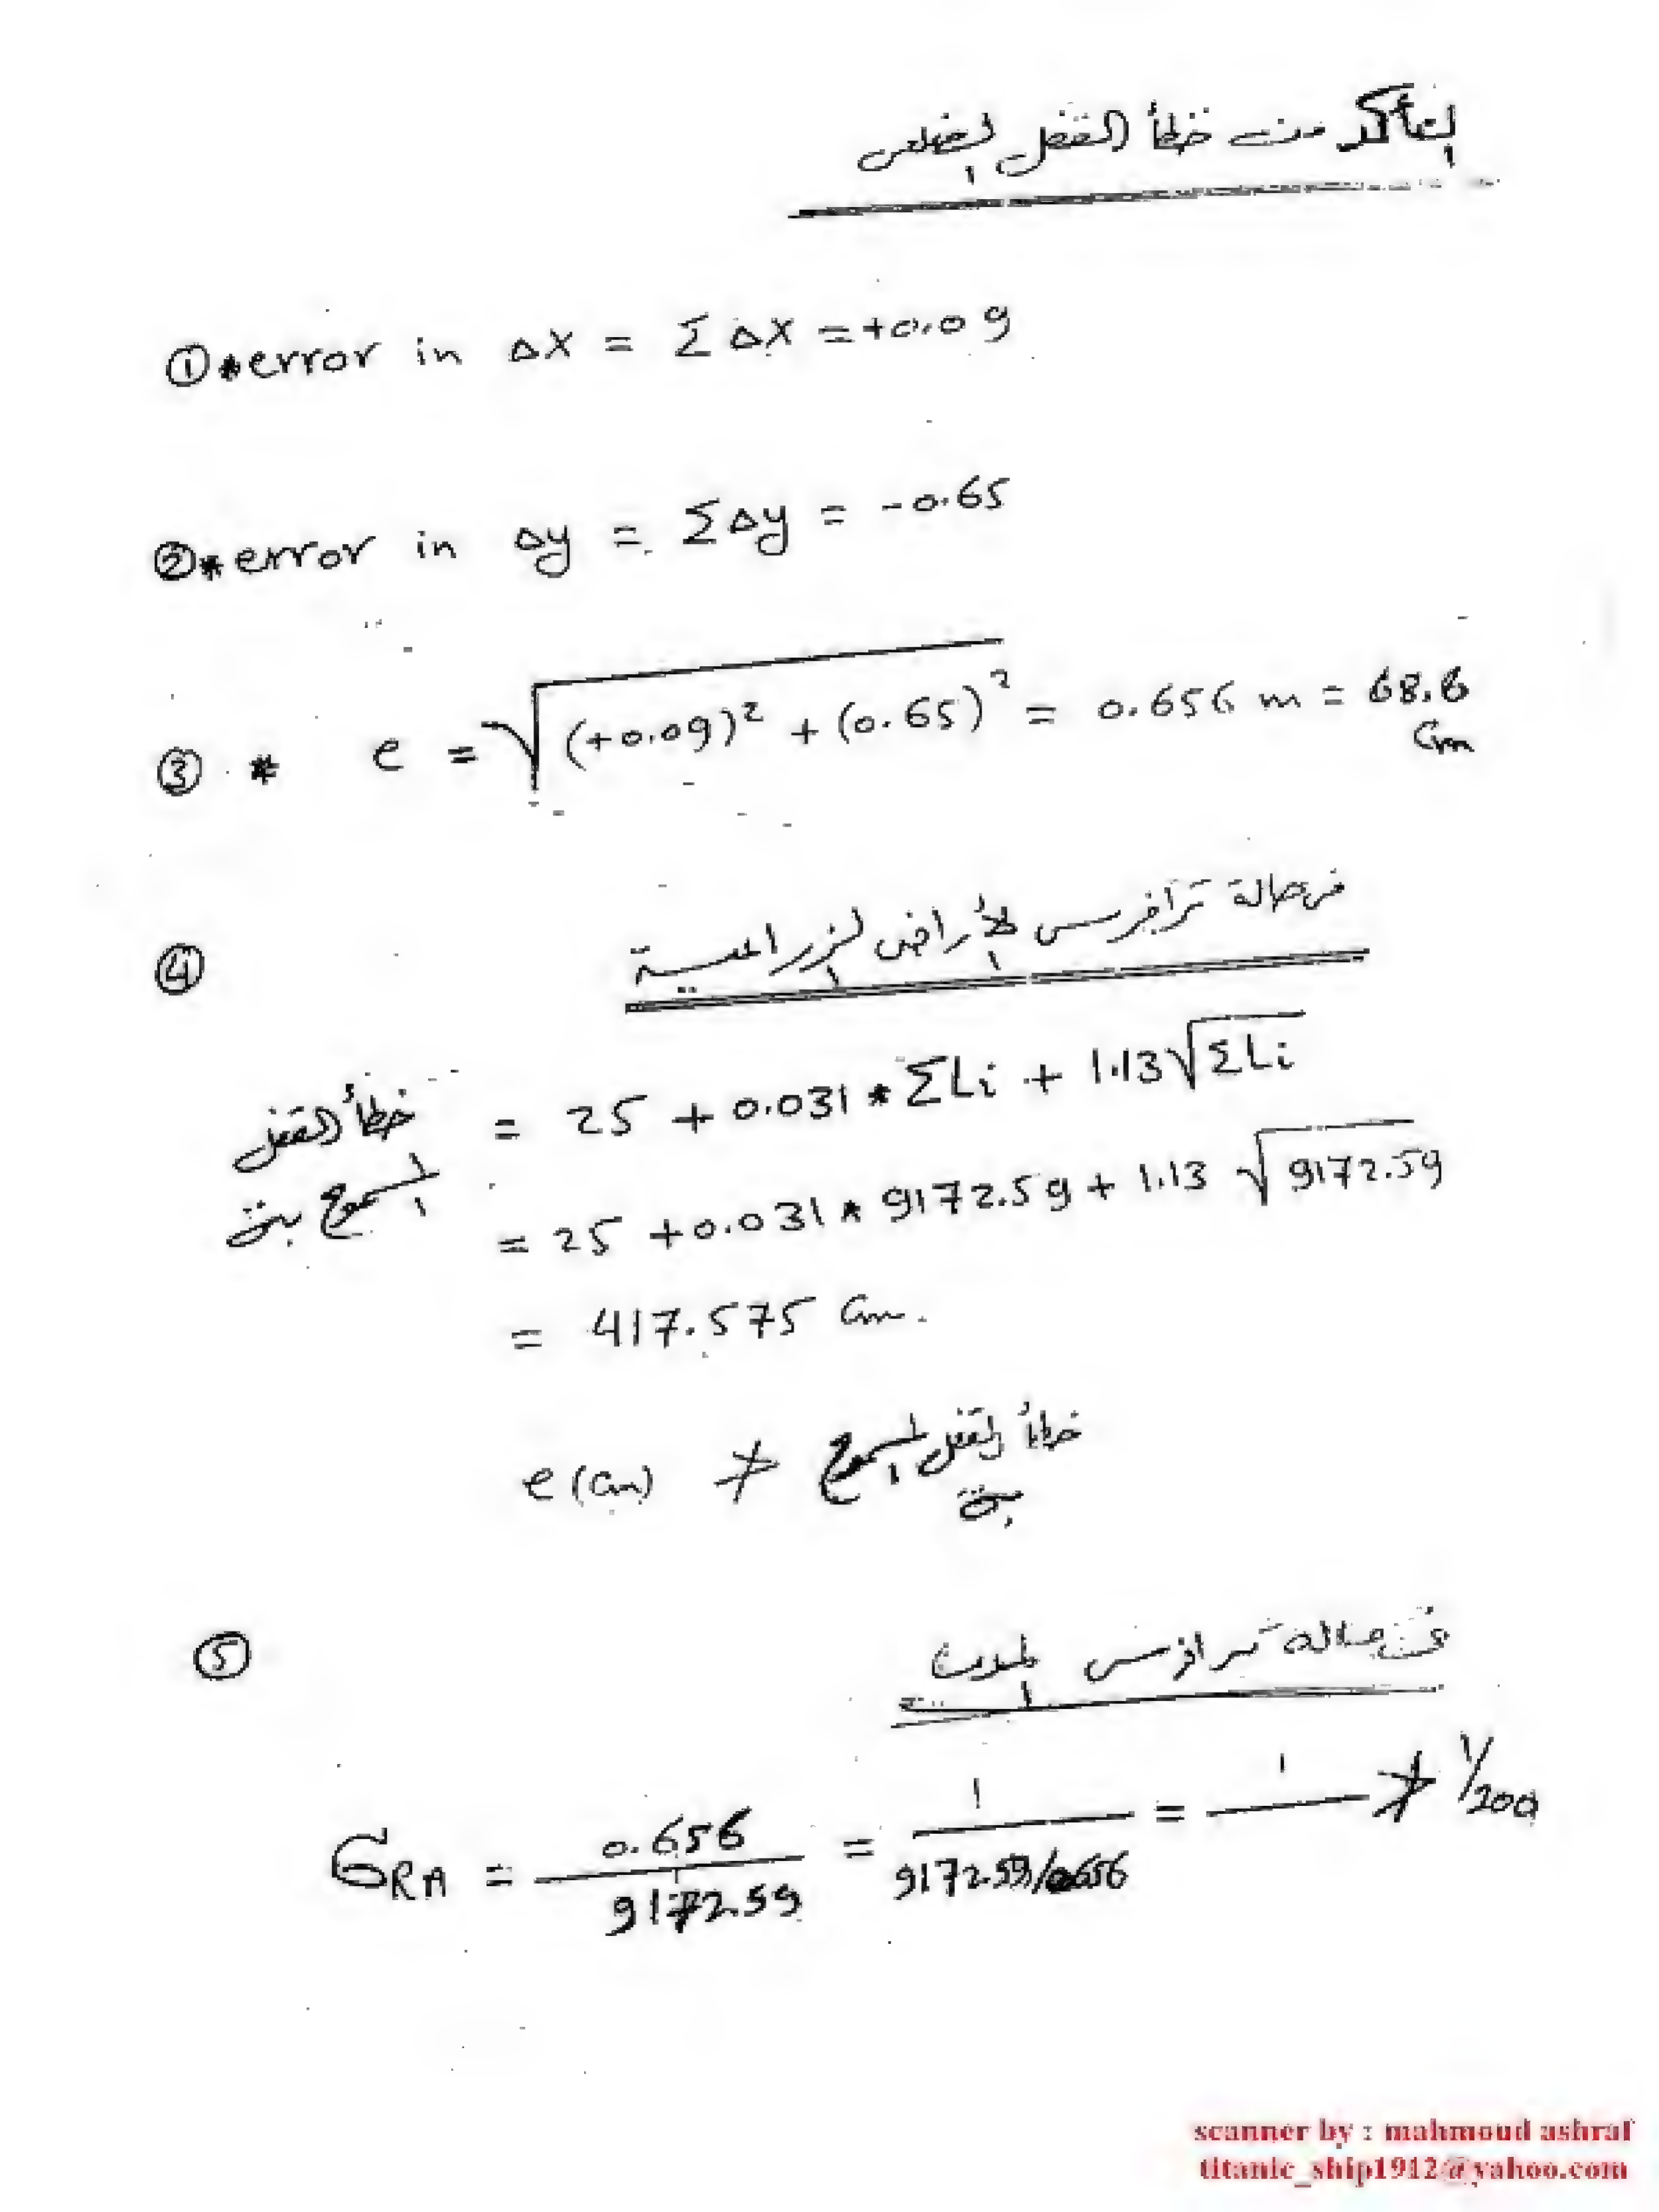 للتأكد من خطأ القفل الضلعى
① * error in ΔX = ΣΔX = +0.09
② * error in Δy = ΣΔy = -0.65
③ * e = √((+0.09)² + (0.65)²) = 0.656 m = 68.6 cm
④ فى حالة ترافرس الأراضى الزراعية
خطأ القفل المسموح به = 25 + 0.031 * ΣLi + 1.13 √ΣLi
= 25 + 0.031 * 9172.59 + 1.13 √9172.59
= 417.575 cm.
e (cm) ≯ خطأ القفل المسموح به
⑤ فى حالة ترافرس المدن
σRA = 0.656 / 9172.59 = 1 / (9172.59/0.656) = 1 / ــــ ≯ 1/200
scanner by : mahmoud ashraf
titanic_ship1912@yahoo.com